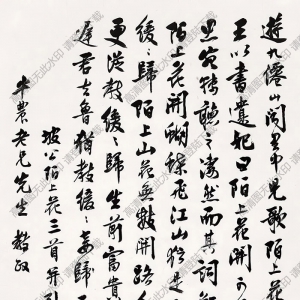 遊九僊山聞里中兒歌陌上花
王以書遺妃曰陌上花開可
思宛轉聽之凄然而其詞
陌上花開蝴蝶飛江山猶是
緩緩歸陌上山花無數開路
更從教緩緩歸生前富貴
遲君去魯猶教緩緩妾歸
坡公陌上花三首并引
半農老兄先生教政
清晰图无此水印